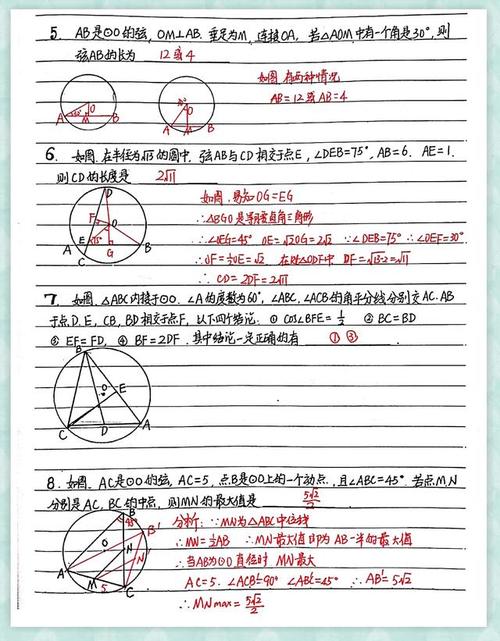 5. AB是⊙O的弦,OM⊥AB.垂足为M,连接OA,若△AOM中有一个角是30°,则
弦AB的长为 12或4
如图.有两种情况
AB=12或AB=4
O
30°
A M B
30°
O
A M B
6. 如图.在半径为√13的圆中,弦AB与CD相交于点E,∠DEB=75°,AB=6.AE=1.
则CD的长度是 2√11
如图.易知OG=EG
∴△BGO是等腰直角三角形
∴∠OEG=45° OE=√2OG=2√2 ∵∠DEB=75° ∴∠OEF=30°
∴OF=½OE=√2.在Rt△ODF中 DF=√13-2=√11
∴CD=2DF=2√11
D
F O
E 75°
A G B
C
7. 如图,△ABC内接于⊙O.∠A的度数为60°,∠ABC,∠ACB的角平分线分别交AC.AB
于点D.E,CB,BD相交于点F,以下四个结论:①cos∠BFE=½ ②BC=BD
③EF=FD,④BF=2DF.其中结论一定正确的有 ① ③
B
O E
C D A
8. 如图.AC是⊙O的弦,AC=5,点B是⊙O上的一个动点.且∠ABC=45°.若点M.N
分别是AC,BC的中点,则MN的最大值是 5√2/2
分析:∵MN为△ABC中位线
∴MN=½AB ∴MN最大值即为AB一半的最大值
∴当AB为⊙O直径时 MN最大
AC=5.∠ACB'=90° ∠AB'C=45° ∴AB'=5√2
∴MNmax=5√2/2
B
45° B'
O
N
N'
A
M
5 C